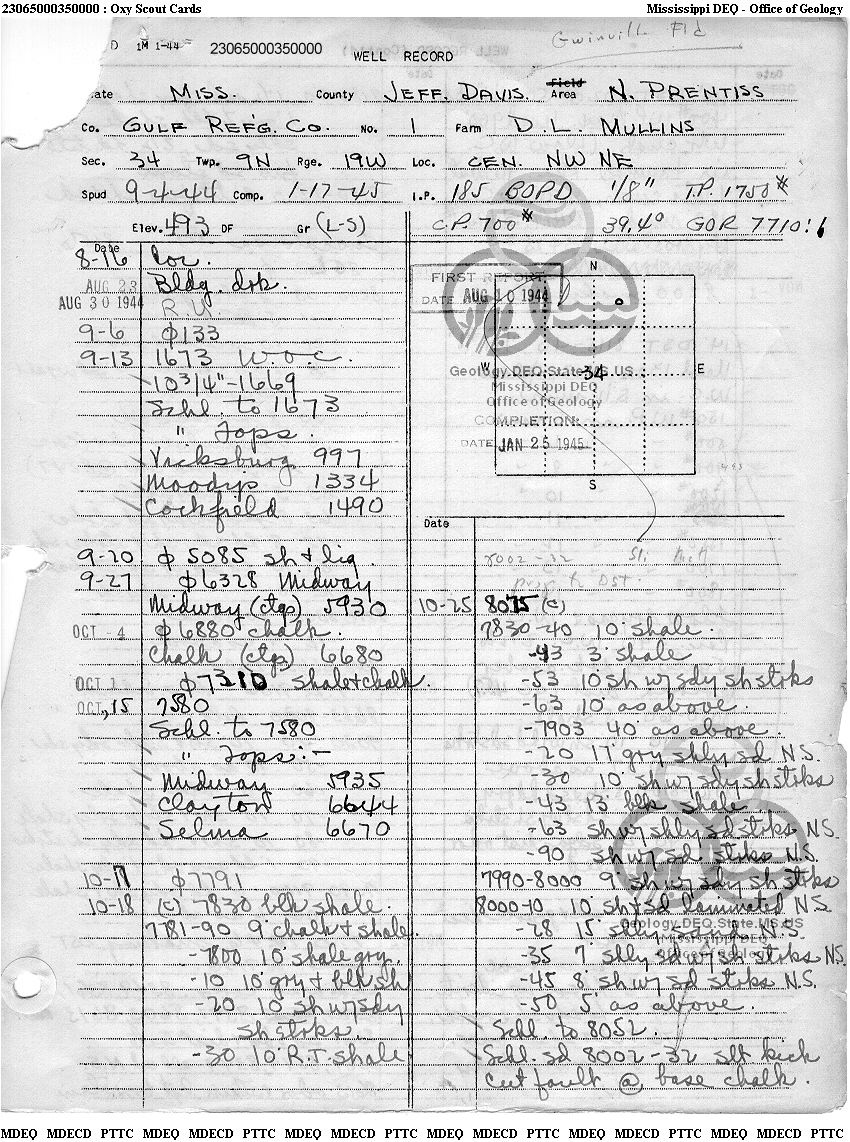 23065000350000 : Oxy Scout Cards
Mississippi DEQ - Office of Geology
D 1M 1-44 23065000350000
Gwinville Fld
WELL RECORD
tate MISS. County JEFF. DAVIS. Field Area N. PRENTISS
Co. GULF REF'G. CO. No. 1 Farm D. L. MULLINS
Sec. 34 Twp. 9N Rge. 19W Loc. CEN. NW NE
Spud 9-4-44 Comp. 1-17-45 I.P. 185 BOPD 1/8" T.P. 1750#
Elev. 493 DF Gr (L-S) C.P. 700# 39.4° GOR 7710:1
Date
8-16 Loc.
AUG 23 Bldg. drk.
AUG 30 1944 R.U.
9-6 φ133
9-13 1673 W.O.C.
10 3/4"-1669
Schl. to 1673
" Tops.
Vicksburg 997
Moodys 1334
Cockfield 1490
9-20 φ 5085 sh + lig.
9-27 φ6328 Midway
Midway (ctgs) 5930
OCT - 4 φ 6880 chalk.
Chalk (ctgs) 6680
OCT 1 φ7310 shale + chalk.
OCT, 15 7580
Schl. to 7580
" Tops:-
Midway 5935
Clayton 6644
Selma 6670
10-17 φ7791
10-18 (c) 7830 blk shale.
7781-90 9' chalk + shale
-7800 10' shale gry.
-10 10' gry + blk sh
-20 10' sh w/ sdy
sh stoks.
-30 10' R.T. shale
FIRST REPORT
DATE AUG 10 1944
N
W
34
E
S
Geology.DEQ.State.MS.US
Mississippi DEQ
Office of Geology
COMPLETION:
DATE JAN 25 1945
Date
8002-32 Sli kick
prep to DST.
10-25 8075 (c)
7830-40 10' shale.
-43 3' shale
-53 10' sh w/ sdy sh stoks
-63 10' as above.
-7903 40' as above.
-20 17' gry shly sd N.S.
-30 10' sh w/ sdy sh stoks
-43 13' blk shale.
-63 sh w/ shly sd stoks N.S.
-90 sh w/ sd stoks N.S.
7990-8000 9' sh w/ sdy sh stoks
8000-10 10' sh + sd laminated N.S.
-28 15' shly sd N.S.
-35 7' shly sd w/ sh stoks N.S.
-45 8' sh w/ sd stoks N.S.
-50 5' as above.
Schl. to 8052.
Schl. sd 8002-32 slt kick
cut fault @ base chalk.
Geology.DEQ.State.MS.US
Mississippi DEQ
Office of Geology
MDEQ MDECD PTTC MDEQ MDECD PTTC MDEQ MDECD PTTC MDEQ MDECD PTTC MDEQ MDECD PTTC MDEQ MDECD PTTC